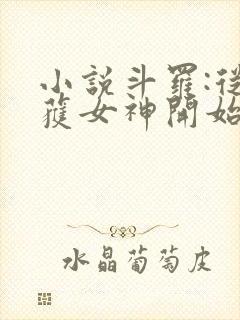 小說斗羅:從
獲女神開始
水晶葡萄皮